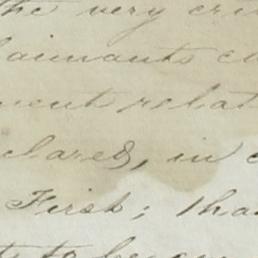 the very cri
laimants c
ment relat
clared, in
First; tha
to be